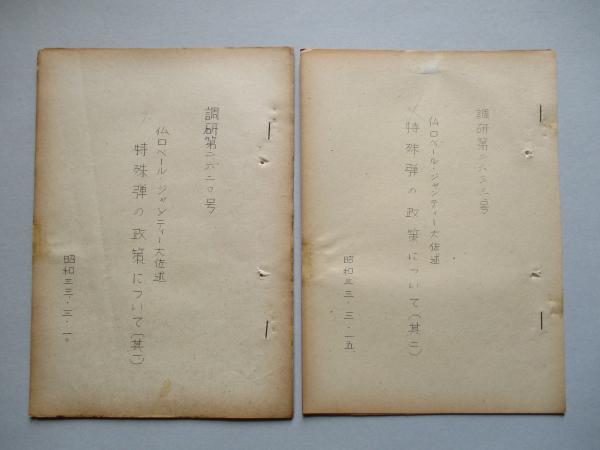 調研第二六二〇号
仏ロベール・ジャンティー大佐述
特殊弾の政策について(其一)
昭和三三・三・一〇
調研第二六二二号
仏ロベール・ジャンティー大佐述
特殊弾の政策について(其二)
昭和三三・三・一五